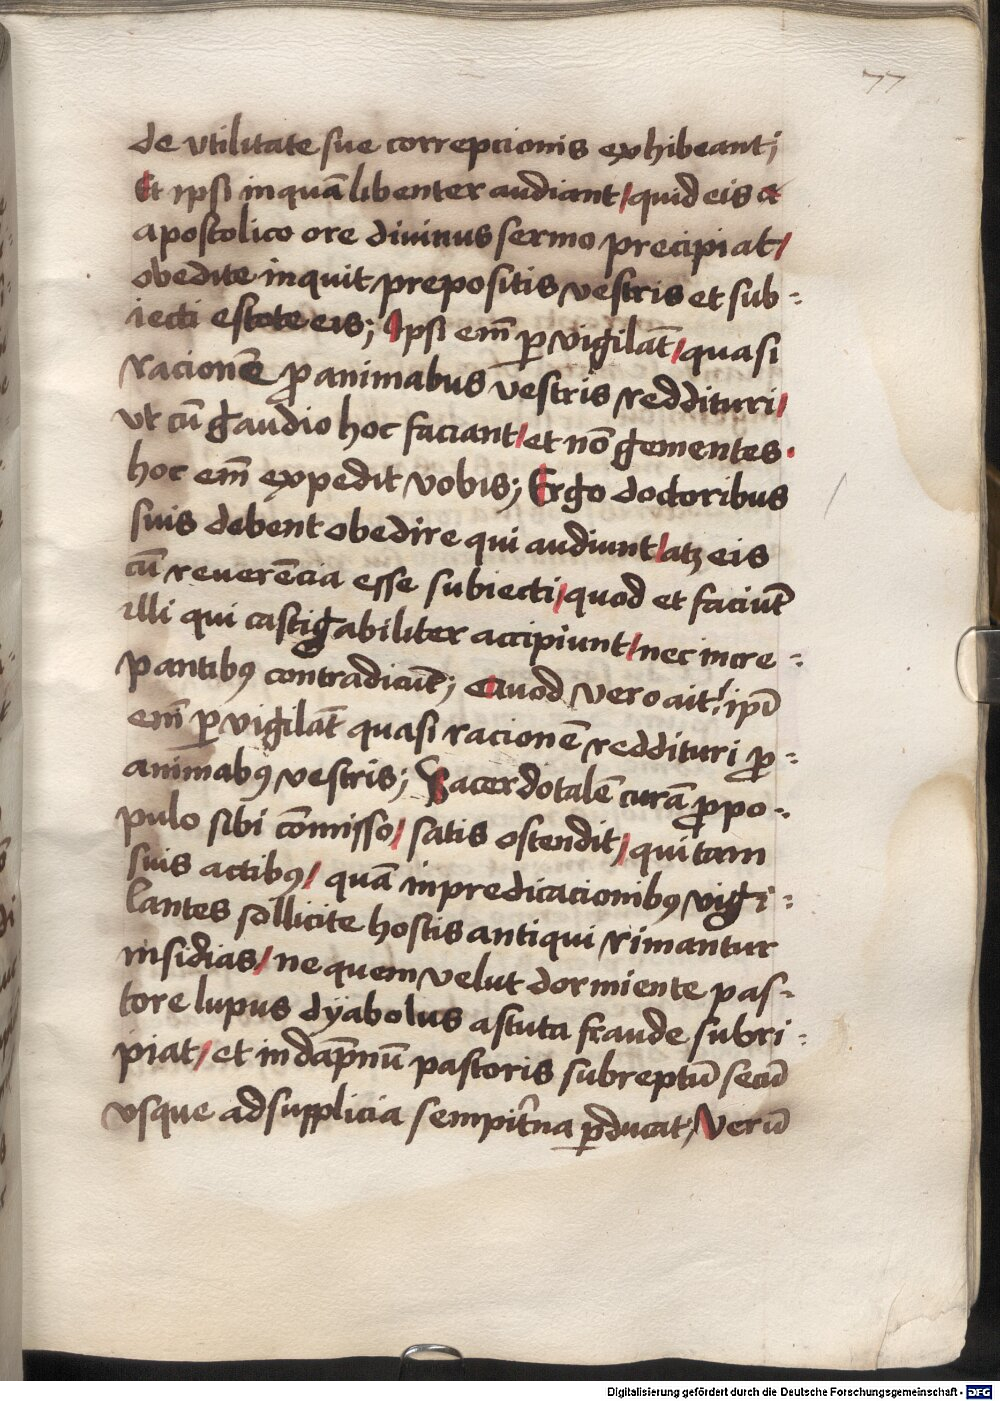 77
de vtilitate sue correpcionis exhibeant;
Et ipsi inquā libenter audiant/ quid eis ex
apostolico ore diuinus sermo precipiat/
obedite inquit prepositis vestris et sub-
iecti estote eis; Ipsi em̄ ꝑvigilāt/ quasi
racionē ꝓ animabus vestris reddituri/
vt cū gaudio hoc faciant/ et nō gementes.
hoc em̄ expedit vobis; Ergo doctoribus
suis debent obedire qui audiunt/ atꝫ eis
cū reuerēcia esse subiecti/ quod et faciūt
illi qui castigabiliter accipiunt/ nec incre-
pantibꝰ contradicūt; Quod vero ait: ip̄i
em̄ ꝑvigilāt quasi racionē reddituri ꝓ-
animabꝰ vestris; Sacerdotalē curā ꝓ po-
pulo sibi cōmisso/ satis ostendit/ qui tam
suis actibꝰ/ quā in predicacionibꝰ vigi-
lantes sollicite hostis antiqui rimantur
insidias/ ne quem velut dormiente pas-
tore lupus dyabolus astuta fraude subri-
piat/ et in dāpnū pastoris subreptū secū
vsque ad supplicia sempit̄na ꝑducat; Verū
Digitalisierung gefördert durch die Deutsche Forschungsgemeinschaft - DFG